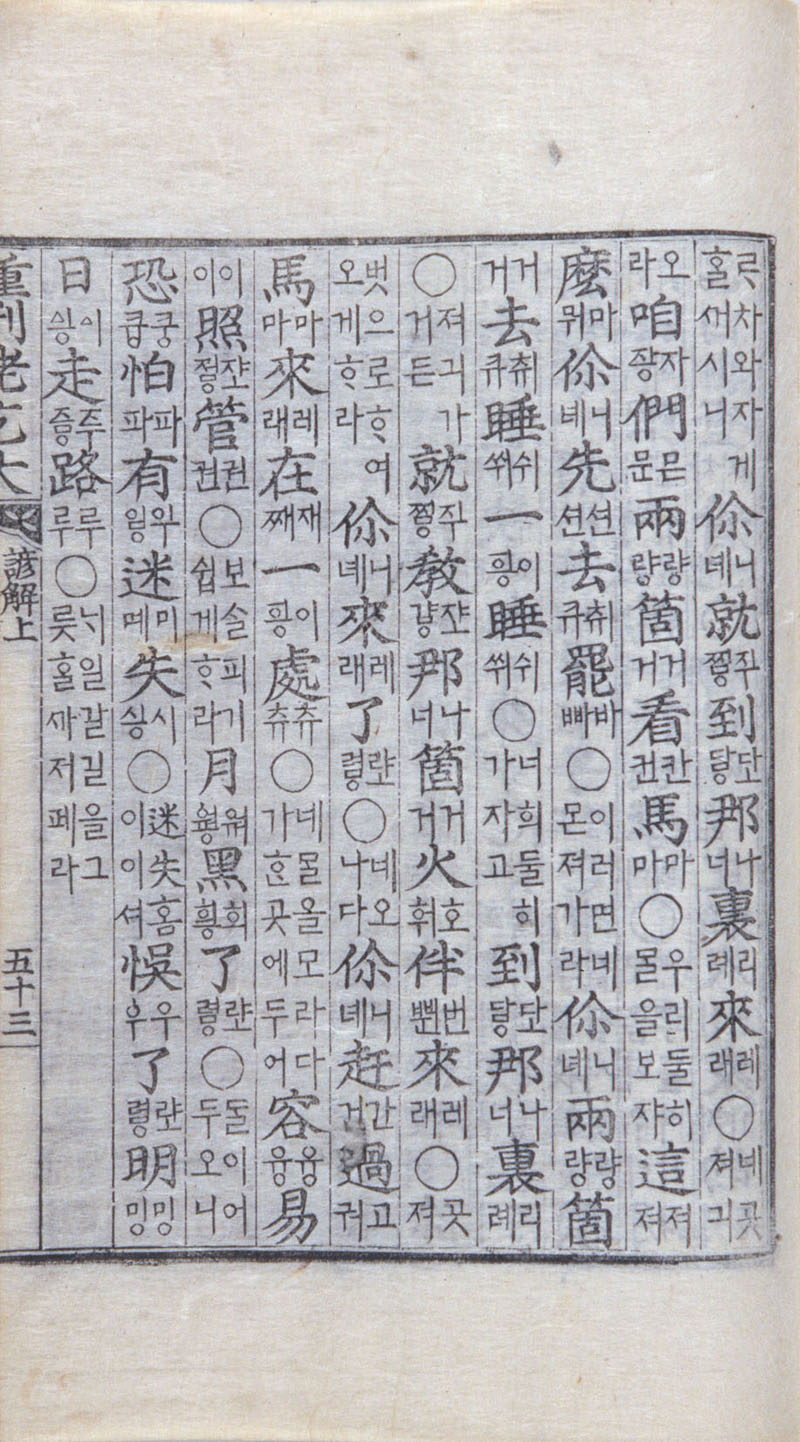 ᄅᆞᆺ차와자게홀새시니你녜니就찌ᇢ직到다ᇢ단那너나裏례리來래레○네곳져긔
오라咱장자們문믄兩량량箇거거看컨칸馬마마○우리둘히ᄆᆞᆯ을보쟈這져져
麽뭐마你녜니先션션去큐취罷빠바○이러면네몬져가라你녜니兩량량箇
거거去큐취睡쒸쉬一ᅙᅵᆼ이睡쒸쉬○너희둘히가자고到다ᇢ단那너나裏례리
○져긔가거든就敎那너나箇거거火훠호伴뻔번來래레○곳져
벗으로ᄒᆞ여오게ᄒᆞ라你녜니來래레了○네오나다你녜니赶건간過궈고
馬마마來래레在째재一ᅙᅵᆼ이處츄츄○네ᄆᆞᆯ올모라다가ᄒᆞᆫ곳에두어容융융易
이이照管권권○보슬피기쉽게ᄒᆞ라月黑힁희了○돌이어두오니
恐쿱쿵怕파파有迷몌미失싱시○迷失홈이이셔悞우우了明밍밍
日싱이走路루루○ᄂᆡ일갈길을그릇홀까저페라
重刊老乞大 諺解上 五十三